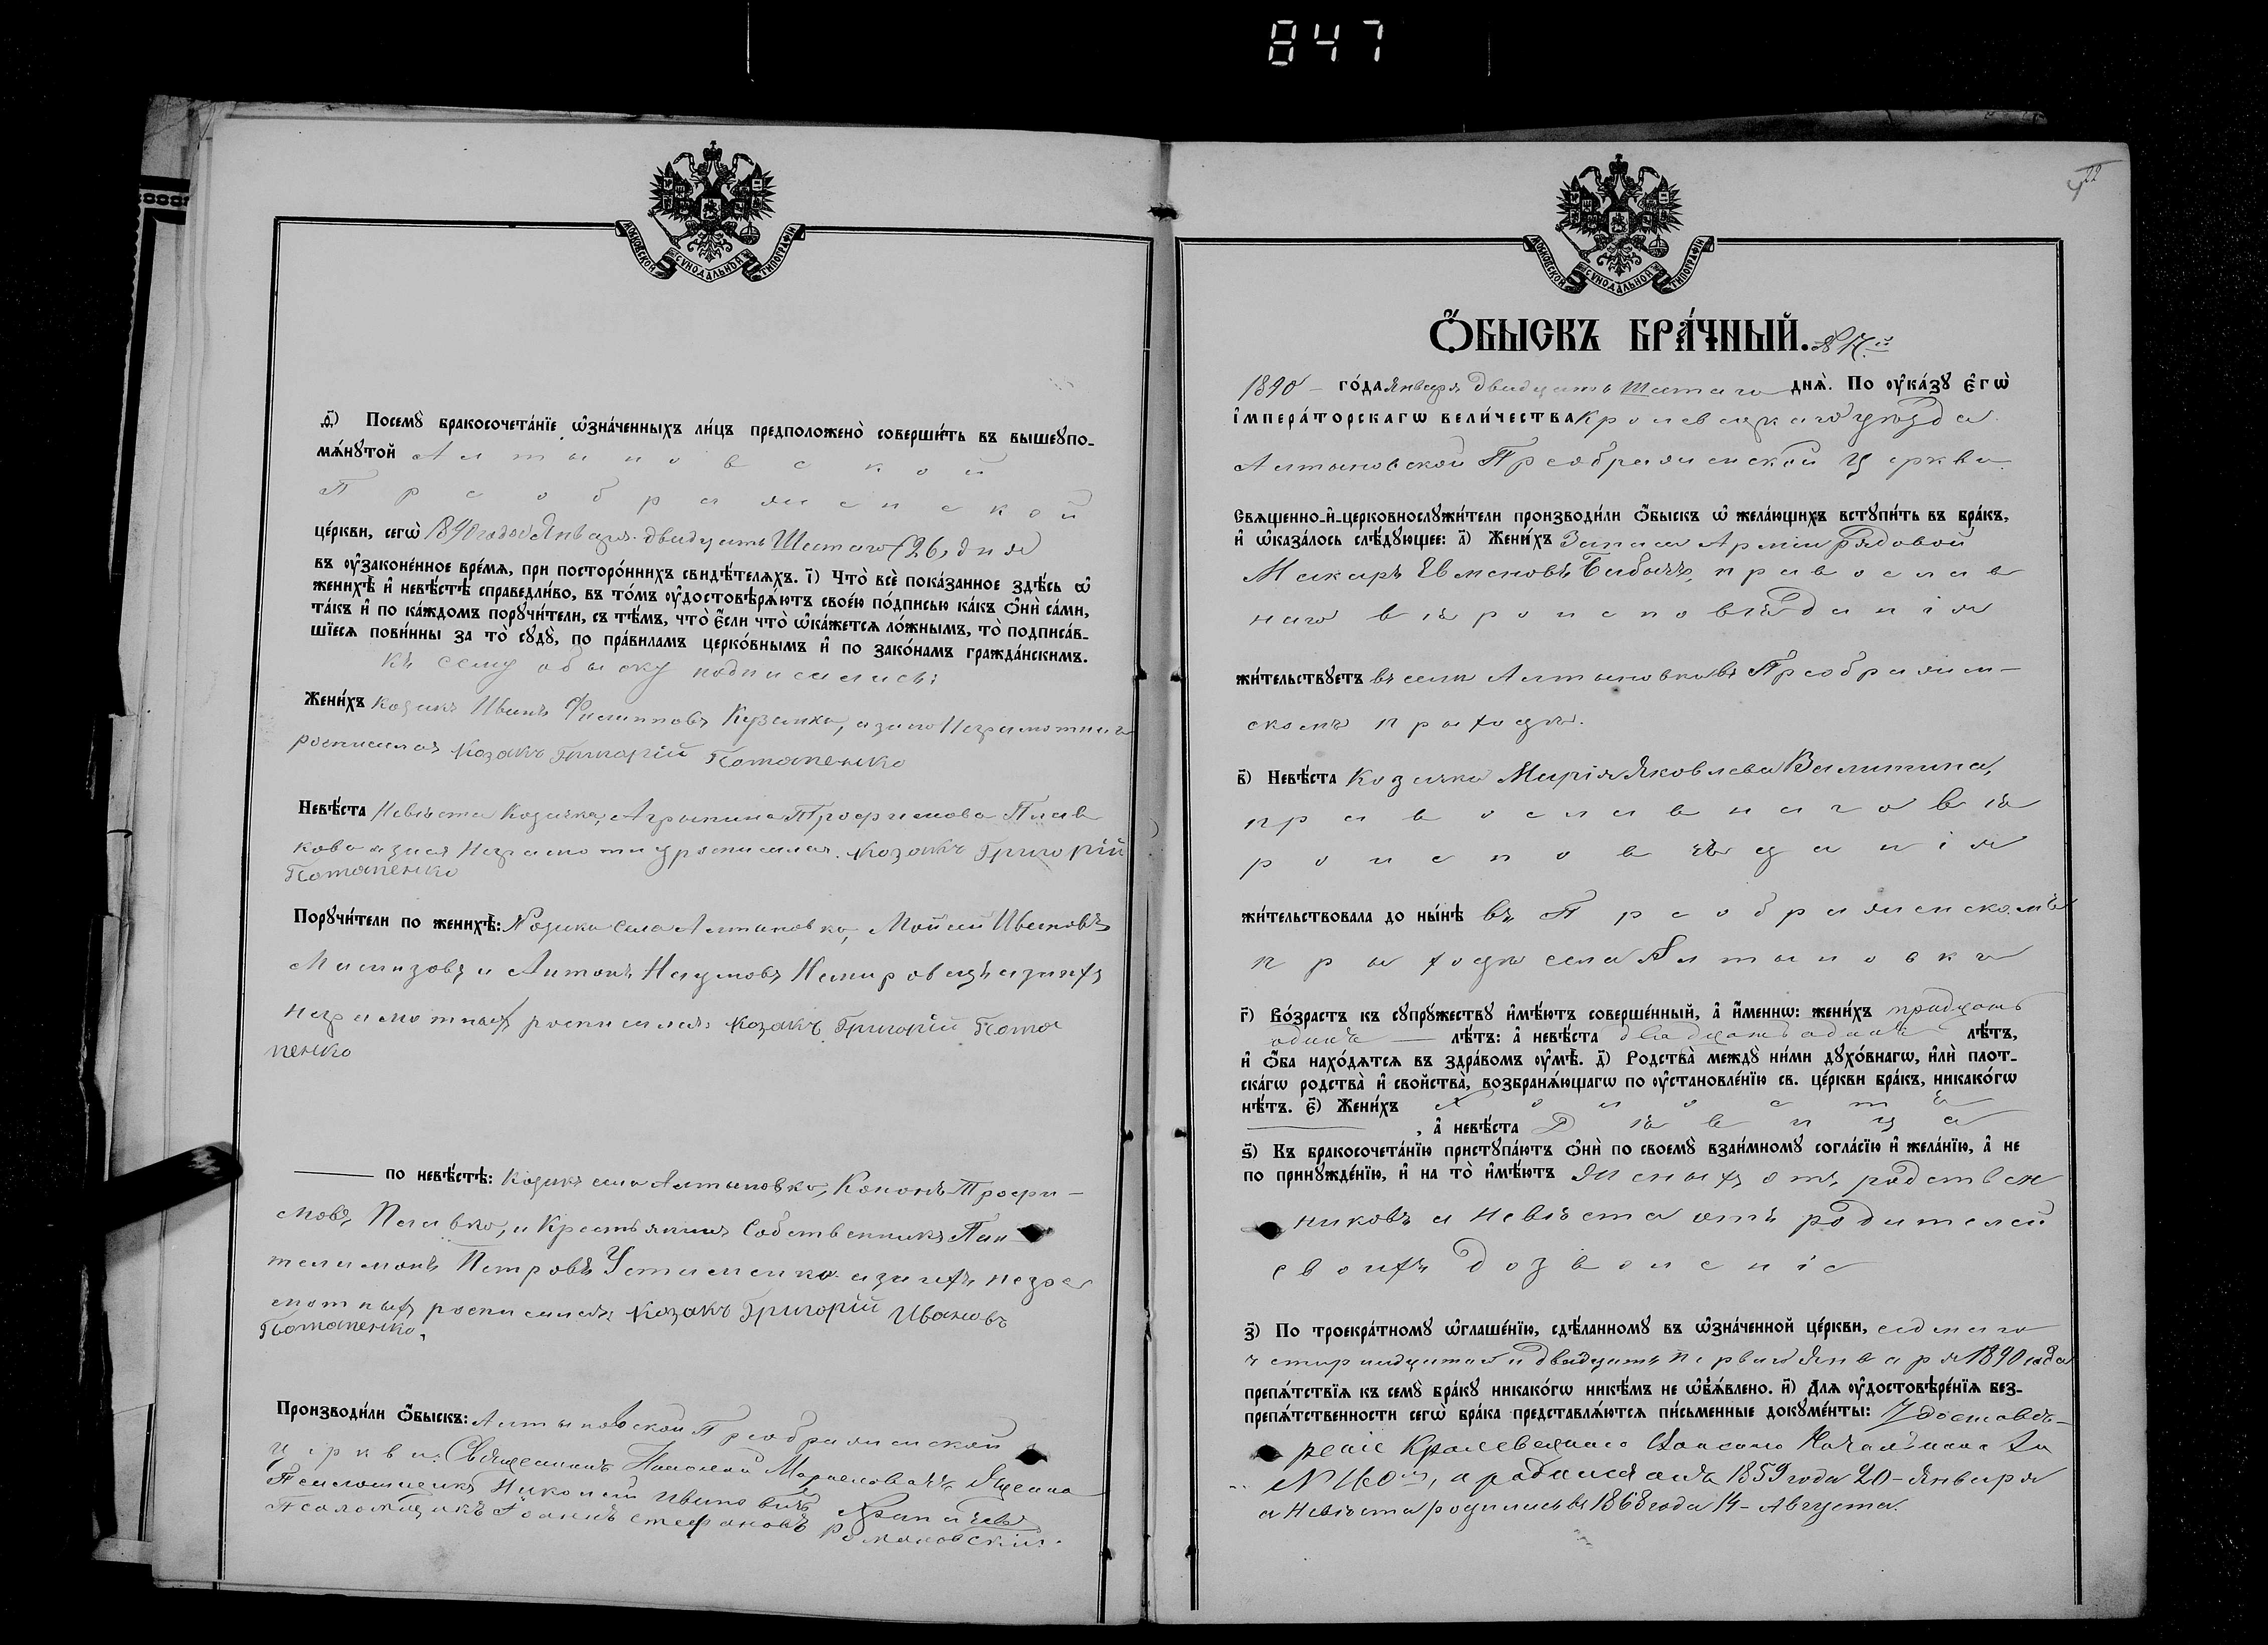 847
МОСКОВСКОЙ СѴНОДАЛЬНОЙ ТИПОГРАФІИ
ѳ҃) Посемꙋ̀ бракосочета́нїе ѡ҆зна́ченныхъ ли́цъ предположено̀ соверши́ть въ вышеꙋпо-
мѧ́нꙋтой Алтыновской
Преображенской
це́ркви, сегѡ̀ 1890 года Января двадцать Шестаго (26) дня
въ ᲂу҆зако́ненное вре́мѧ, при посторо́ннихъ свидѣ́телѧхъ. і҃) Что̀ всѐ пока́занное здѣ́сь ѡ҆
женихѣ̀ и҆ невѣ́стѣ справедли́во, въ то́мъ ᲂу҆достовѣрѧ́ютъ свое́ю по́дписью ка́къ ѻ҆нѝ са́ми,
та́къ и҆ по ка́ждомъ порꙋчи́тели, съ тѣ́мъ, что̀ є҆́сли что̀ ѡ҆ка́жетсѧ ло́жнымъ, то̀ подписа́в-
шїесѧ пови́нны за то̀ сꙋдꙋ̀, по пра́виламъ церко́внымъ и҆ по зако́намъ гражда́нскимъ.
Къ сему обыску подписались:
Жени́хъ Козакъ Иванъ Филипповъ Кузьмко, а за него Неграмотнаго
росписался Козакъ Григорій Потапенко
Невѣ́ста Невѣста Козачка, Агрыпина Трофимова Плав
кова а за нея Неграмотну росписался Козакъ Григорій
Потапенко
Порꙋчи́тели по женихѣ̀: Козаки села Алтыновки, Мойсей Ивановъ
и Антонъ Наумовъ Немировецъ а за нихъ
неграмотныхъ росписался Козакъ Григорій Пота
пенко
по невѣ́стѣ: Козакъ села Алтыновки, Кононъ Трофи-
мовъ Плавко, и Крестьянинъ Собственникъ Пан
телимонъ Петровъ Устименко а за нихъ негра
мотныхъ росписался Козакъ Григорій Ивановъ
Потапенко.
Производи́ли ѻ҆́быскъ: Алтыновской Преображенской
церкви: Священникъ
Псаломщикъ Николай Ивановичъ
Псаломщикъ Іоаннъ Стефановъ Романовскій.
МОСКОВСКОЙ СѴНОДАЛЬНОЙ ТИПОГРАФІИ
22
Ѻ҆́БЫСКЪ БРА́ЧНЫЙ. № 17.й
1890 го́да Января двадцать Шестаго днѧ̀. По ᲂу҆ка́зꙋ є҆гѡ̀
і҆мпера́торскагѡ вели́чества Кролевецкаго уѣзда
Алтыновской Преображенской Церкви
Свѧщенно-и҆-церковнослꙋжи́тели производи́ли ѻ҆́быскъ ѡ҆ жела́ющихъ встꙋпи́ть въ бра́къ,
и҆ ѡ҆каза́лось слѣ́дꙋющее: а҃) Жени́хъ Запаса Арміи Рядовой
Макаръ Евменовъ Бабичъ, православ
наго вѣроисповѣданія
жи́тельствꙋетъ въ селѣ Алтыновкѣ въ Преображен-
скомъ приходѣ.
в҃) Невѣ́ста Козачка Марія Яковлева Валитина,
православнаго вѣ
роисповѣданія
жи́тельствовала до ны́нѣ въ Преображенскомъ
приходѣ села Алтыновки
г҃) Во́зрастъ къ сꙋпрꙋ́жествꙋ и҆мѣ́ютъ соверше́нный, а҆ и҆́меннѡ: жени́хъ тридцать
одинъ лѣ́тъ: а҆ невѣ́ста двадцать одинъ лѣ́тъ,
и҆ ѻ҆́ба нахо́дѧтсѧ въ здра́вомъ ᲂу҆мѣ̀. д҃) Родства̀ междꙋ̀ ни́ми дꙋхо́внагѡ, и҆лѝ плот-
ска́гѡ родства̀ и҆ свойства̀, возбранѧ́ющагѡ по ᲂу҆становле́нїю св. це́ркви бра́къ, никако́гѡ
нѣ́тъ. є҃) Жени́хъ Холостъ
, а҆ невѣ́ста Дѣвица
ѕ҃) Къ бракосочета́нїю пристꙋпа́ютъ ѻ҆нѝ по своемꙋ̀ взаи́мномꙋ согла́сїю и҆ жела́нїю, а҆ не
по принꙋжде́нїю, и҆ на то̀ и҆мѣ́ютъ Женихъ отъ родствен
никовъ а невѣста отъ родителей
своихъ дозволеніе
з҃) По троекра́тномꙋ ѡ҆глаше́нїю, сдѣ́ланномꙋ въ ѡ҆зна́ченной це́ркви, седмаго
четырнадцатаго и двадцать перваго Января 1890 года
препѧ́тствїѧ къ семꙋ̀ бра́кꙋ никако́гѡ никѣ́мъ не ѡ҆б̾ѧ́влено. и҃) Длѧ ᲂу҆достовѣре́нїѧ без-
препѧ́тственности сегѡ̀ бра́ка представлѧ́ютсѧ пи́сьменные докꙋме́нты: Удостовѣ-
реніе Кролевецкаго Воинскаго Начальника За
№ 160м, а родился онъ 1859 года 20 - Января
а Невѣста родилась въ 1868 года 14 - Августа.